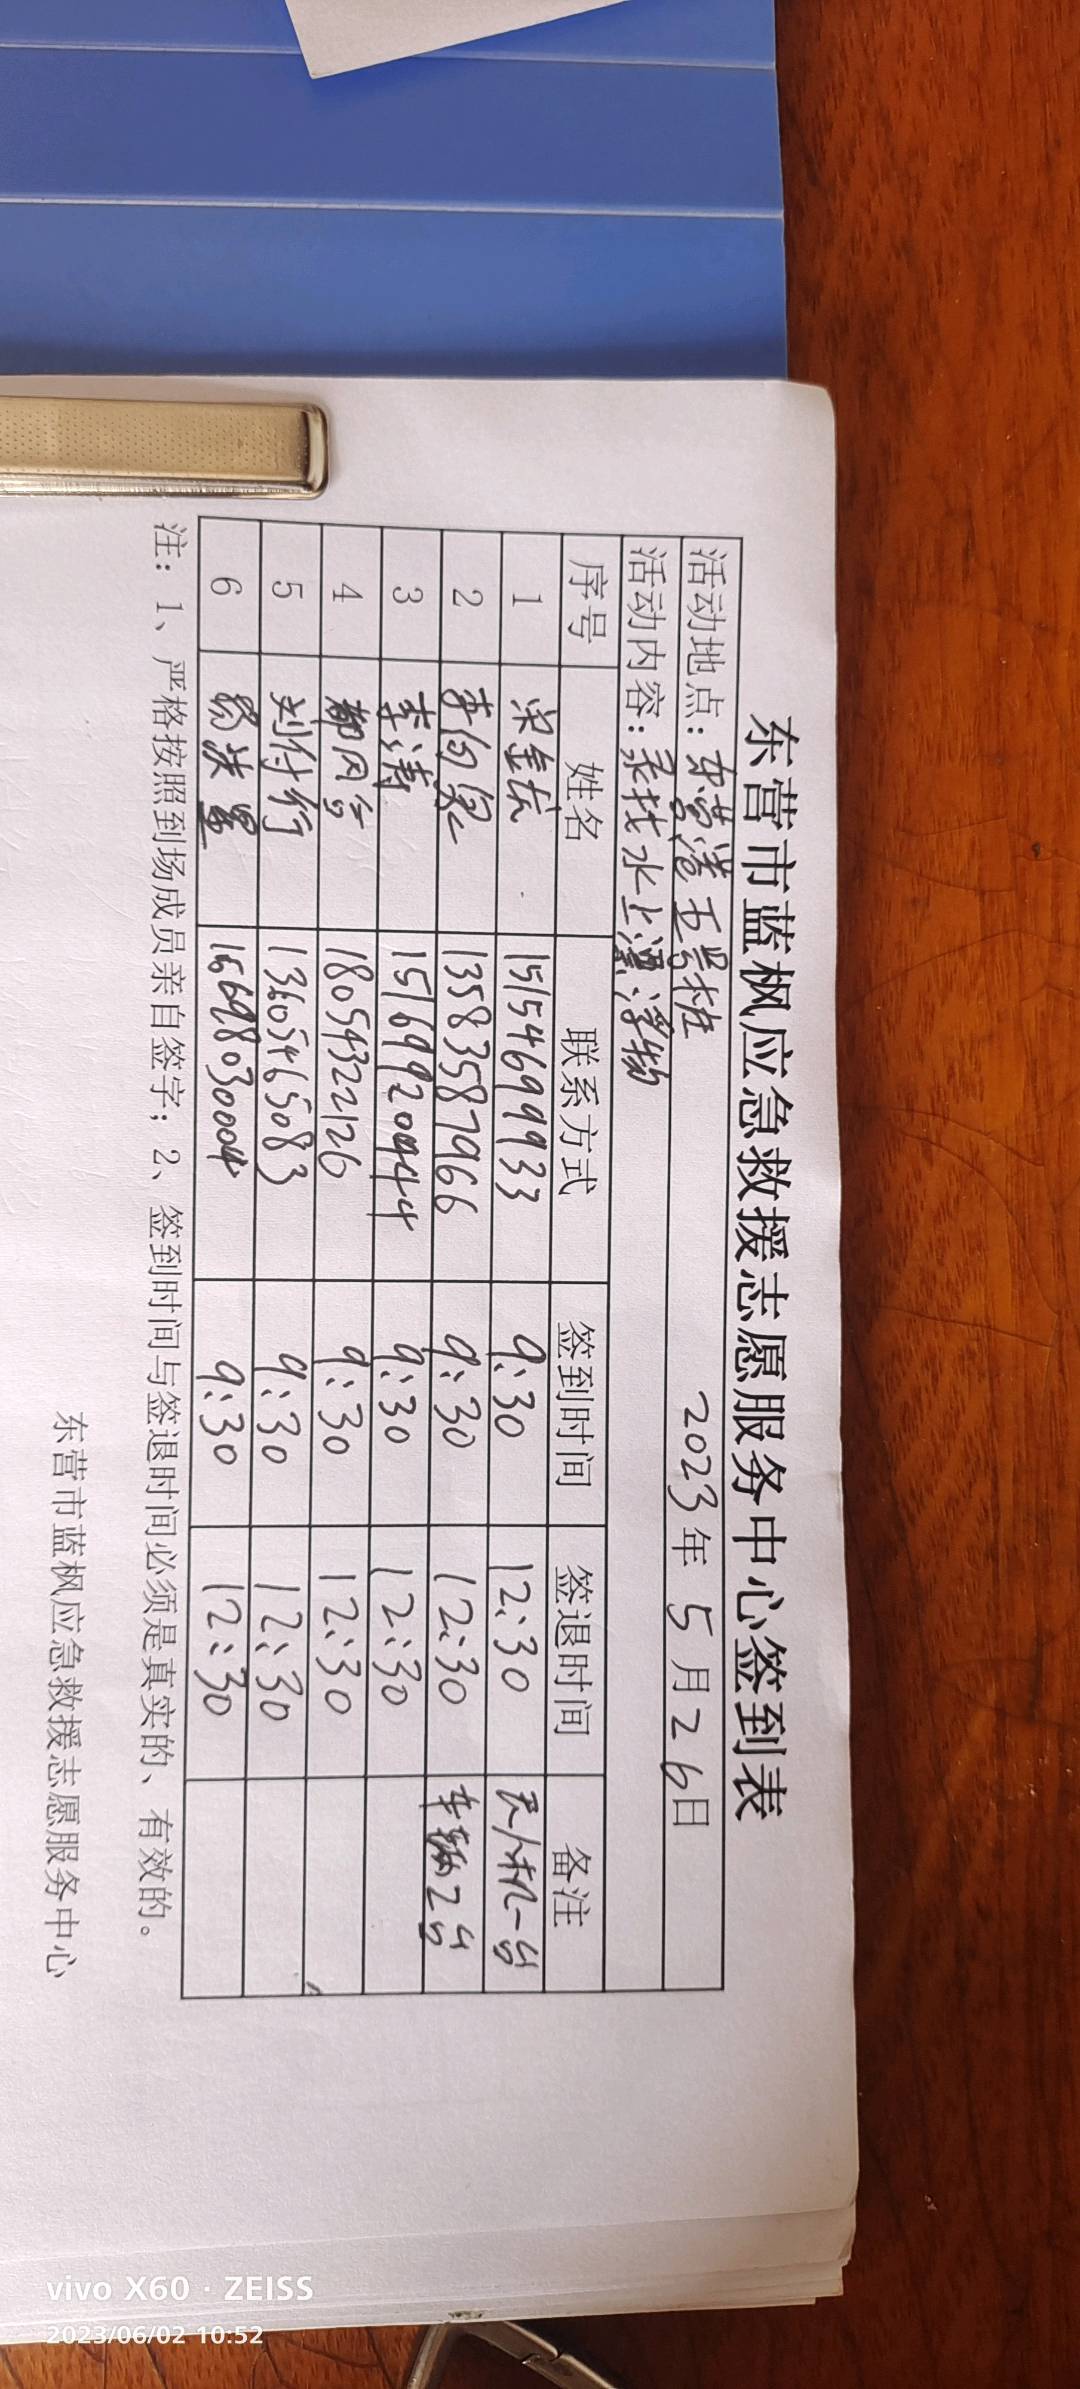 东营市蓝枫应急救援志愿服务中心签到表
活动地点：东营港 2023年5月26日
活动内容：寻找水上漂浮物
序号 姓名 联系方式 签到时间 签退时间 备注
1 梁金 15154699933 9:30 12:30 无人机一台
2 13583587966 9:30 12:30 车辆2台
3 李涛 15169920944 9:30 12:30
4 18054322126 9:30 12:30
5 刘付行 13605465083 9:30 12:30
6 9:30 12:30
注：1、严格按照到场成员亲自签字；2、签到时间与签退时间必须是真实的、有效的。
东营市蓝枫应急救援志愿服务中心
vivo X60 · ZEISS
2023/06/02 10:52